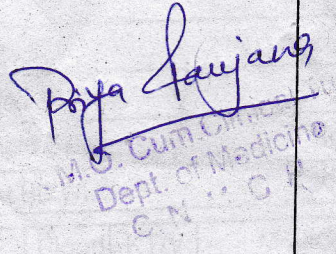 Priya Ranjana
M.O. Cum Clinical
Dept. of Medicine
C N M C H